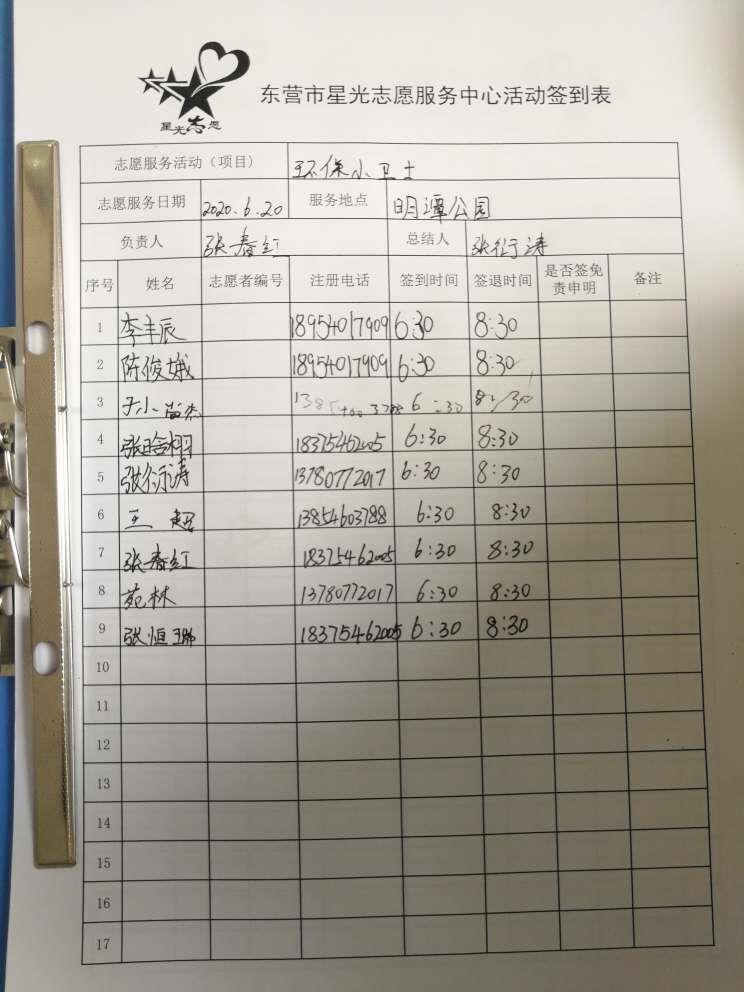 星光志愿
东营市星光志愿服务中心活动签到表
志愿服务活动（项目） 环保小卫士
志愿服务日期 2020.6.20 服务地点 明潭公园
负责人 张春红 总结人 张衍涛
序号 姓名 志愿者编号 注册电话 签到时间 签退时间 是否签免责申明 备注
1 李丰辰 18954017909 6:30 8:30
2 陈俊娥 18954017909 6:30 8:30
3 于小 6:30 8:30
4 张晗栩 18375462005 6:30 8:30
5 张衍涛 13780772017 6:30 8:30
6 王超 13854603788 6:30 8:30
7 张春红 18375462005 6:30 8:30
8 苑林 13780772017 6:30 8:30
9 张恒瑞 18375462005 6:30 8:30
10
11
12
13
14
15
16
17